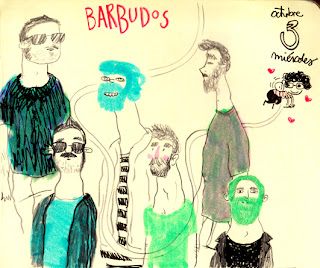 BARBUDOS
octubre
3
miércoles